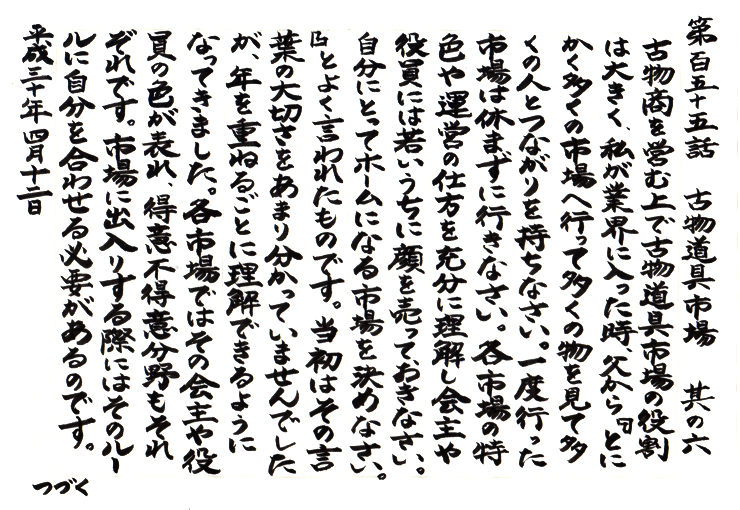 第百五十五話　古物道具市場　其の六
古物商を営む上で古物道具市場の役割
は大きく、私が業界に入った時、父から『とに
かく多くの市場へ行って多くの物を見て多
くの人とつながりを持ちなさい。一度行った
市場は休まずに行きなさい。各市場の特
色や運営の仕方を充分に理解し会主や
役員には若いうちに顔を売っておきなさい。
自分にとってホームになる市場を決めなさい。
』とよく言われたものです。当初はその言
葉の大切さをあまり分かっていませんでした
が、年を重ねるごとに理解できるように
なってきました。各市場ではその会主や役
員の色が表れ、得意不得意分野もそれ
ぞれです。市場に出入りする際にはそのルー
ルに自分を合わせる必要があるのです。
平成三十年四月十二日
つづく